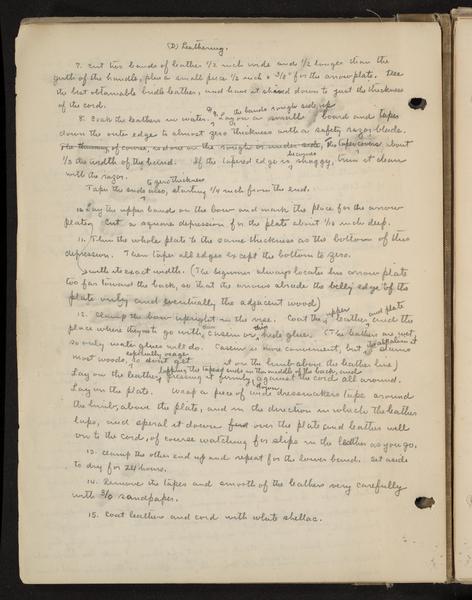 (D) Leathering.
7. Cut two bands of leather 1/2 inch wide and 1/2 longer than the
girth of the handle, plus a small piece 1/2 inch x 3/8" for the arrow plate. Use
the best obtainable bridle leather, and have it down to just the thickness
of the cord.
8. Soak the leathers in water. 9. Lay the bands rough side up on a smooth board and taper
down the outer edges to almost zero thickness with a safety razor blade.
The thinning, of course, is done on the rough or under side, the taper covers about
1/3 the width of the band. If the tapered edge is becomes shaggy, trim it clean
with the razor.
Taper the ends also, to zero thickness starting 1/4 inch from the end.
10. Lay the upper bands on the bow and mark the place for the arrow
plate. Cut a square depression for the plate about 1/16 inch deep.
11. Thin the whole plate to the same thickness as the bottom of this
depression. Then taper all edges except the bottom to zero.
with its exact width. (The beginner always locates his arrow plate
too far toward the back, so that the arrows abrade the belly edge of the
plate only and eventually the adjacent wood)
12. Clamp the bow upright in the vise. Coat the upper leather and plate and the
place where they are to go with casein or hide glue. (The leathers are wet,
so only water glues will do. Casein is more convenient, but its alkalinity stains
most woods, especially osage, so don't get it on the limb above the leather line)
Lay on the leather, lapping the taped ends in the middle of the back, and pressing it firmly down against the cord all around.
Lay on the plate. Wrap a piece of wide dressmakers tape around
the limb, above the plate, and in the direction in which the leather
laps, and spiral it down over the plate and leather well
on to the cord, of course watching for slips in the leather as you go.
13. Clamp the other end up and repeat for the lower band. Set aside
to dry for 24 hours.
14. Remove the tapes and smooth off the leathers very carefully
with 3/0 sandpaper.
15. Coat leathers and cord with white shellac.